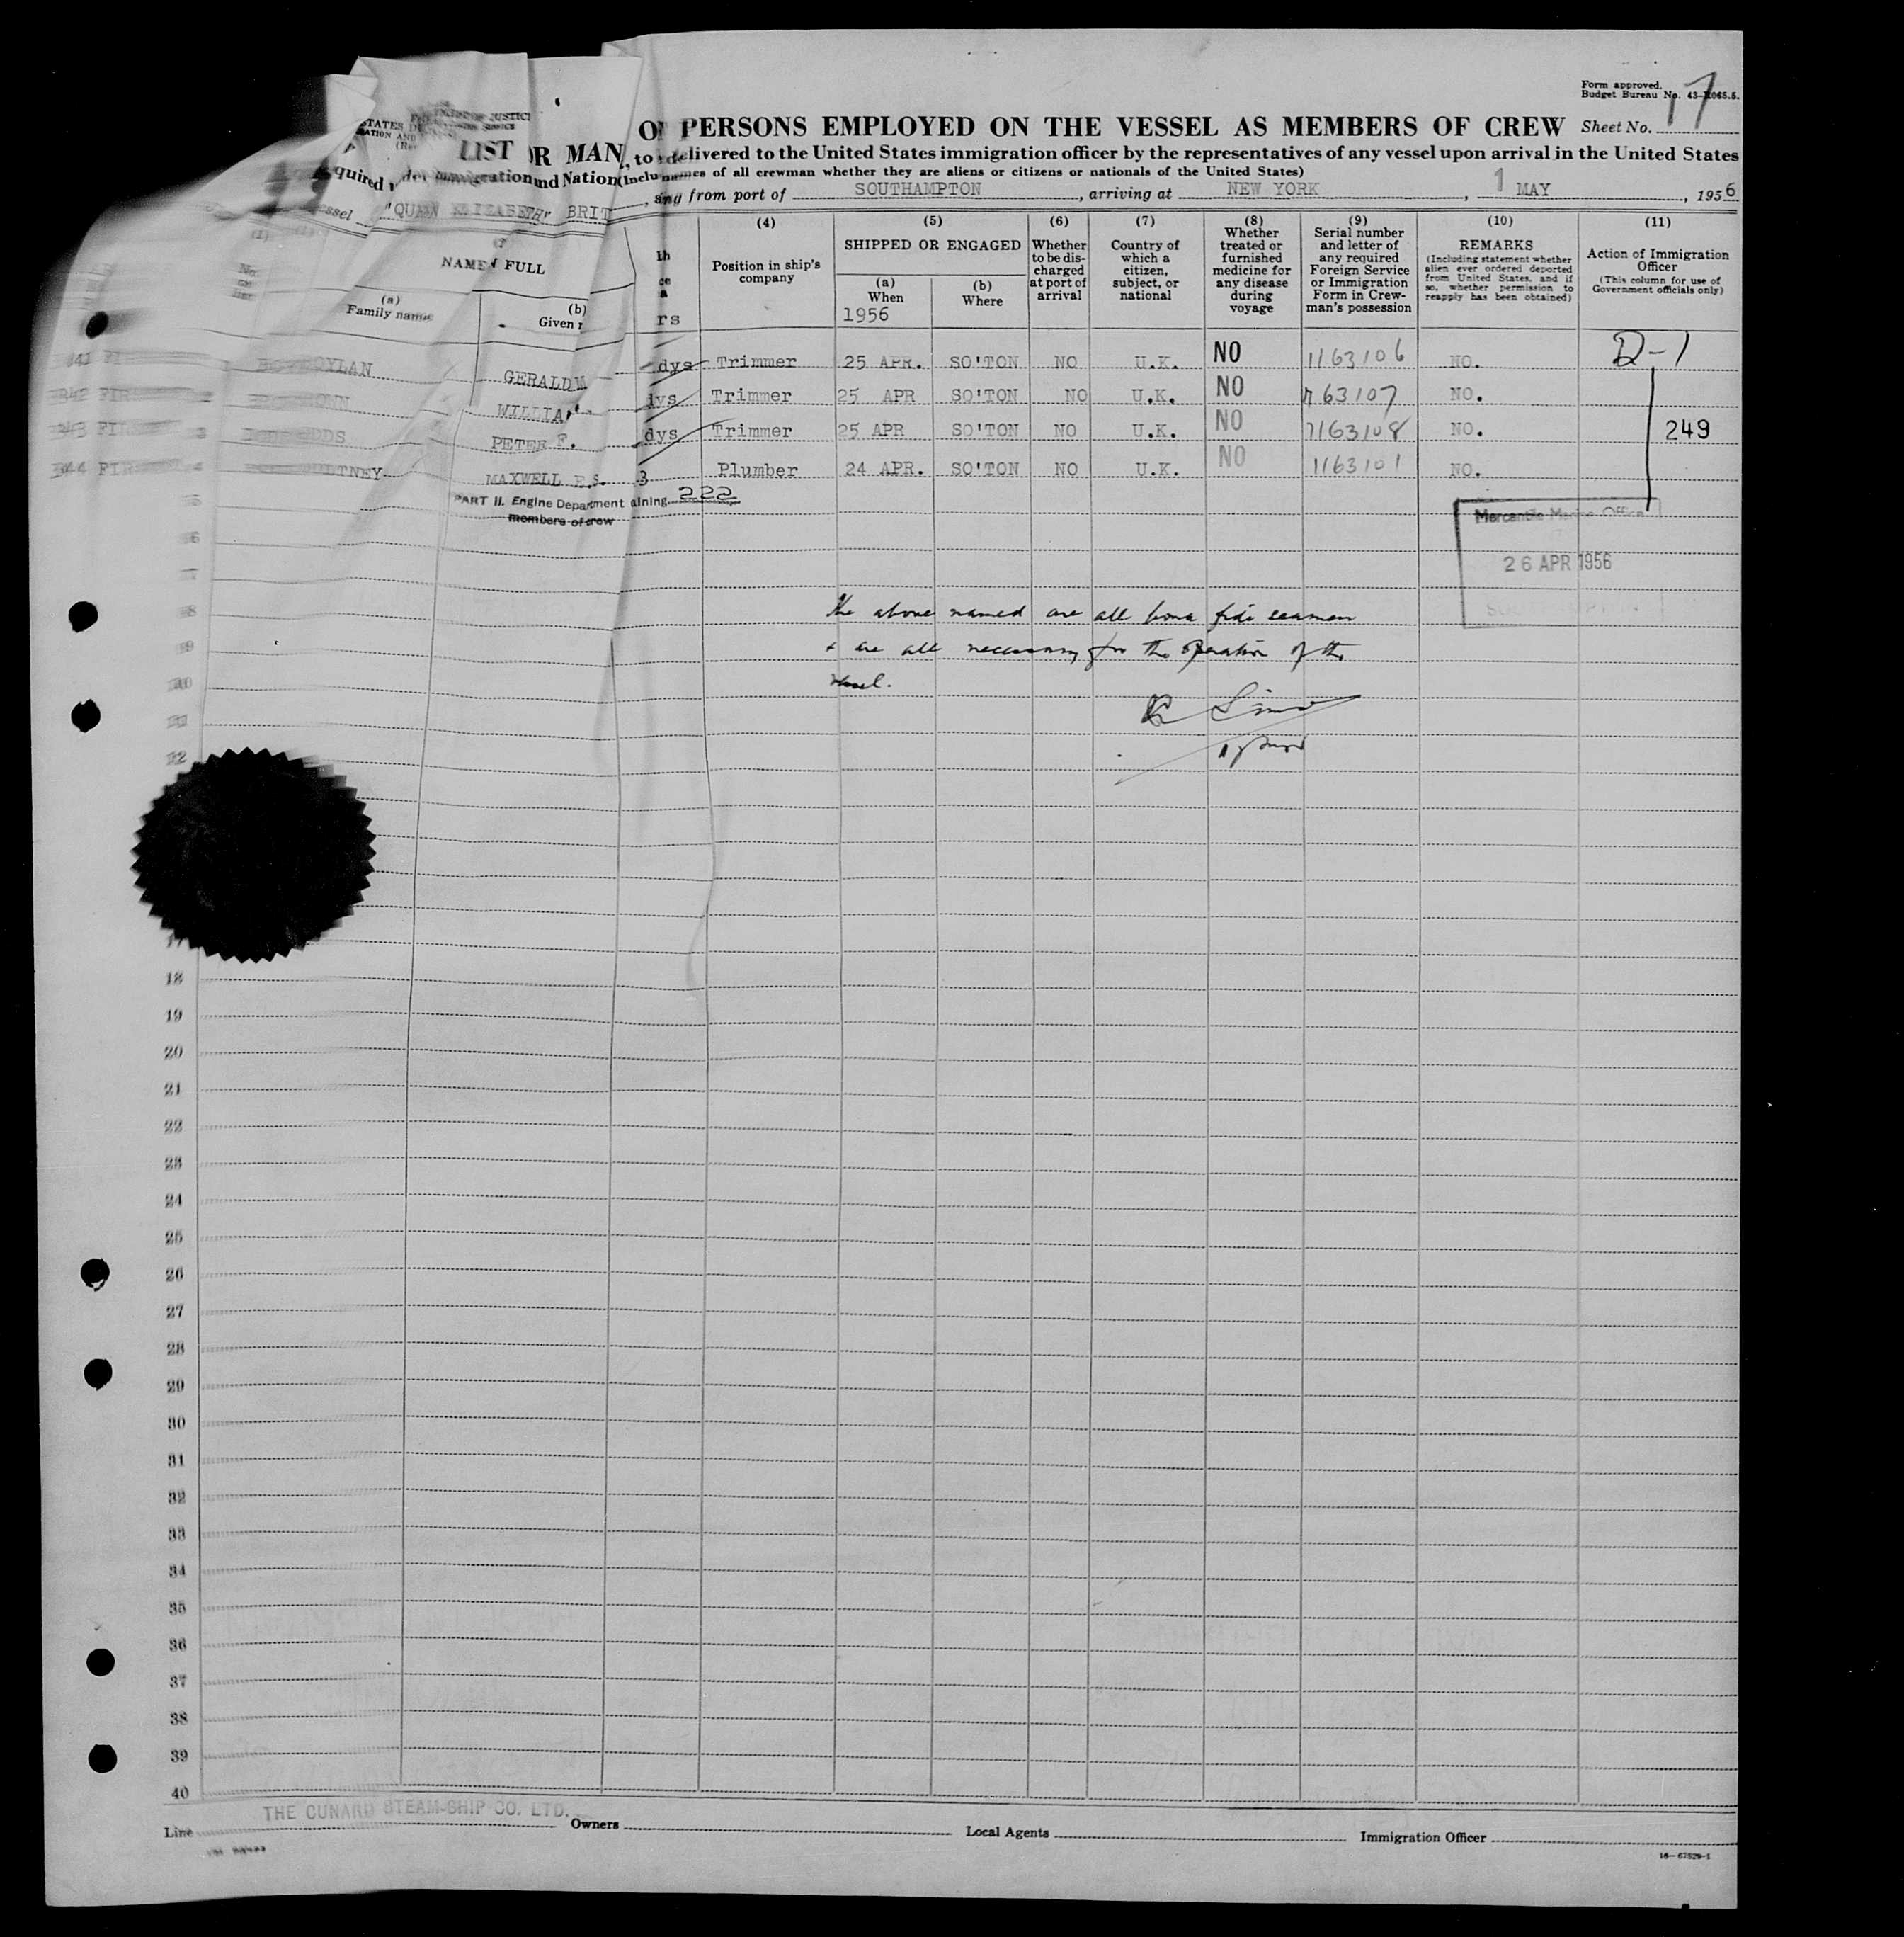 Form approved.
Budget Bureau No. 43-R065.5.
Sheet No. 17
STATES
JUSTICE
LIST OR MAN OF PERSONS EMPLOYED ON THE VESSEL AS MEMBERS OF CREW
to delivered to the United States immigration officer by the representatives of any vessel upon arrival in the United States
quired under immigration and Nation (Inclu names of all crewman whether they are aliens or citizens or nationals of the United States)
ssel "QUEEN ELIZABETH" BRIT, ing from port of SOUTHAMPTON, arriving at NEW YORK, 1 MAY, 1956
NAME FULL
(a)
Family name
(b)
Given
(4)
Position in ship's company
(5)
SHIPPED OR ENGAGED
(a)
When
1956
(b)
Where
(6)
Whether to be discharged at port of arrival
(7)
Country of which a citizen, subject, or national
(8)
Whether treated or furnished medicine for any disease during voyage
(9)
Serial number and letter of any required Foreign Service or Immigration Form in Crewman's possession
(10)
REMARKS
(Including statement whether alien ever ordered deported from United States, and if so, whether permission to reapply has been obtained)
(11)
Action of Immigration Officer
(This column for use of Government officials only)
OYLAN GERALD M dys Trimmer 25 APR. SO'TON NO U.K. NO 1163106 NO. D-1
WILLIAM dys Trimmer 25 APR SO'TON NO U.K. NO 1163107 NO.
PETER F. dys Trimmer 25 APR SO'TON NO U.K. NO 1163108 NO. 249
TNEY MAXWELL E.S. 3 Plumber 24 APR. SO'TON NO U.K. NO 1163101 NO.
PART II. Engine Department aining 222
members of crew
Mercantile Marine Office
26 APR 1956
The above named are all bona fide seamen
& are all necessary for the operation of the
vessel.
18
19
20
21
22
23
24
25
26
27
28
29
30
31
32
33
34
35
36
37
38
39
40
THE CUNARD STEAM-SHIP CO. LTD.
Line Owners Local Agents Immigration Officer
16—67829-1